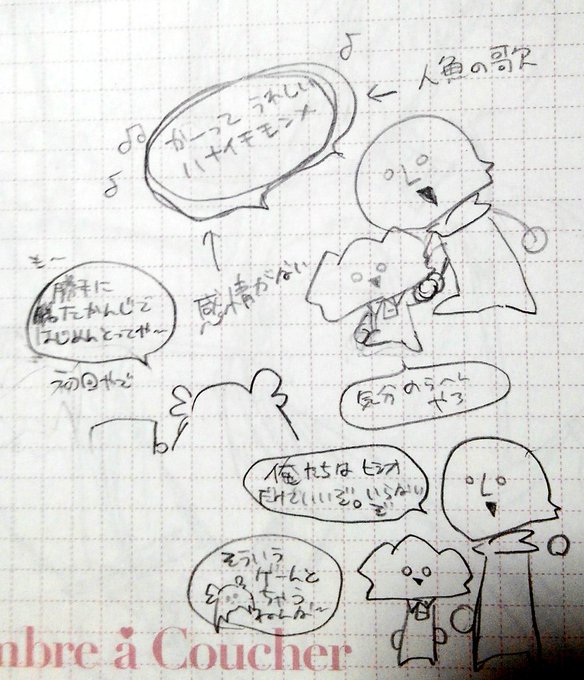 人魚の歌
かーって うれしい
ハナイチモンメ
感情がない
もー
勝手に
勝ったかんじで
はじめんとってや〜
初回やで
気分のうへし
やろ
俺たちは ヒラオ
だけでいいぞ。いらない
ぞ
そういう
ゲームと
ちゃう
ねんな〜
mbre à Coucher